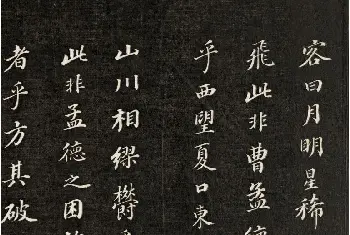 客曰月明星稀
飛此非曹孟德
乎西望夏口東
山川相繆欝
此非孟德之困
者乎方其破